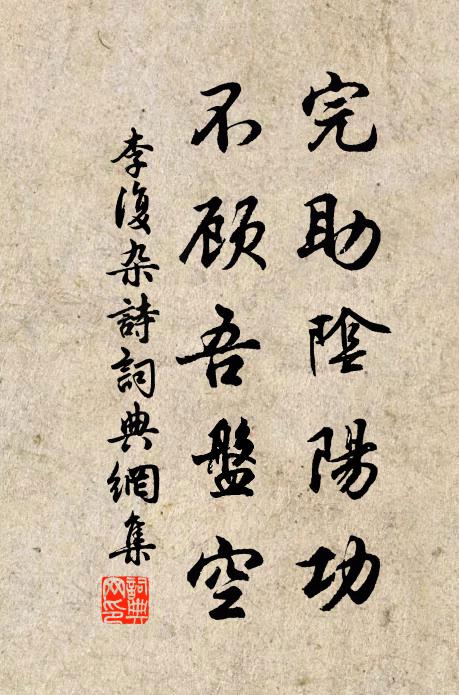 完助陰陽功
不顾吾盤空
李復杂詩詞典網集
詞典网印